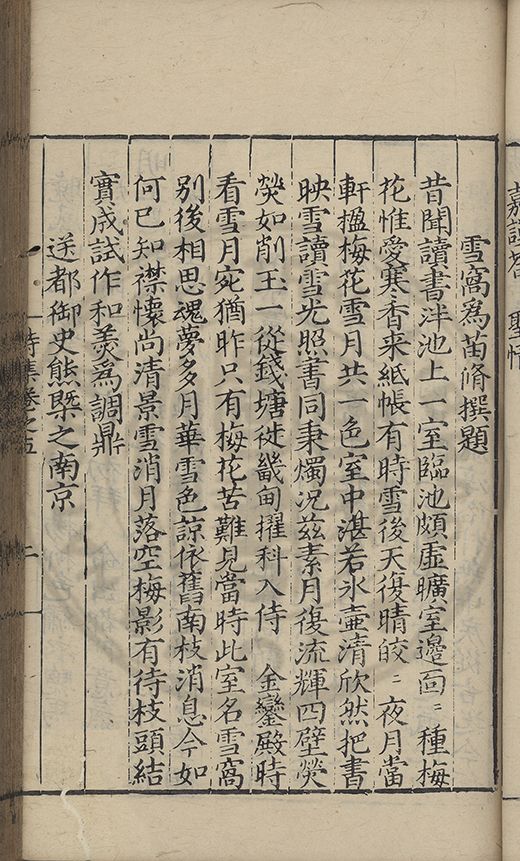 雪窩爲苗脩撰題
昔聞讀書泮池上一室臨池頗虛曠室邊面〻種梅
花惟愛寒香来紙帳有時雪後天復晴皎〻夜月當
軒楹梅花雪月共一色室中湛若氷壷清欣然把書
映雪讀雪光照書同秉燭况兹素月復流輝四壁熒
熒如削玉一從錢塘徙畿甸擢科入侍 金鑾殿時
看雪月宛猶昨只有梅花苦難見當時此室名雪窩
别後相思魂夢多月華雪色諒依舊南枝消息今如
何已知襟懷尚清景雪消月落空梅影有待枝頭結
實成試作和羹爲調鼎
送都御史熊槩之南京